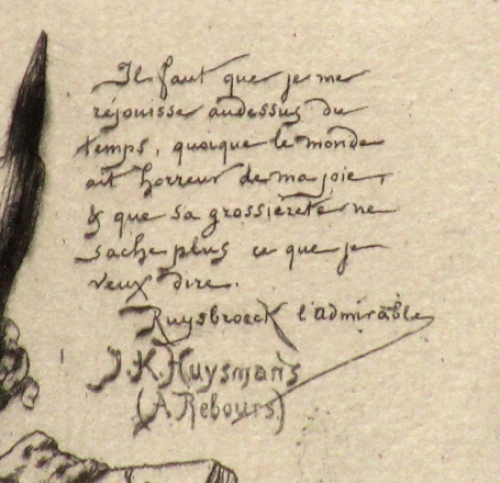 Il faut que je me
réjouisse audessus du
temps, quoique le monde
ait horreur de ma joie,
& que sa grossièreté ne
sache plus ce que je
veux dire.
Ruysbroeck l'admirable
J. K. Huysmans
(A Rebours)